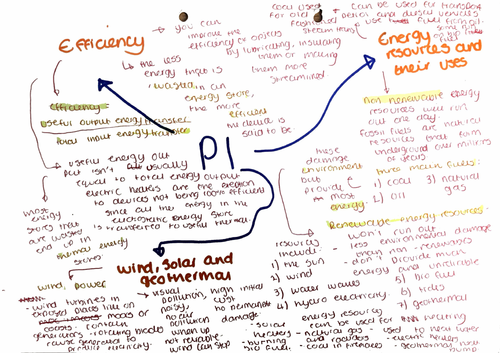 Efficiency
→ you can
improve the
efficiency of objects
by lubricating, insulating
them or making
them more
streamlined
↳ the less
energy that is
wasted in an
energy store,
the more
efficient
the device is
said to be
efficiency
useful output energy transfer
total input energy transfer
→ useful energy out
put isn't usually
equal to total energy output
electric heaters are the exception
to devices not being 100% efficient
since all the energy in the
electrostatic energy store
is transferred to useful thermal.
most
energy
stores that
are wasted
end up in
thermal energy
stores
P1
coal used
for old
fashioned
steam trains
can be used for transport
petrol and diesel vehicles
use fuel from oil
Energy
resources and
their uses
Non renewable energy
resources will run
out one day.
fossil fuels are natural
resources that form
underground over millions
of years
three main fuels:
1) coal 3) natural
2) oil gas
these
damage
environment
but
provide
most
energy
Renewable energy resources
won't run out
- less environmental damage
than non-renewables
- don't provide much
energy and unreliable
resources
include:
1) the sun
2) wind
3) water waves
4) hydro electricity
5) bio fuel
6) tides
7) geothermal
energy resources
can be used for heating
- solar
- natural gas - used to heat water
and radiators
- burning
bio fuel
- coal in fireplaces
- electric heaters
- geothermal heat
pump
wind, solar and
geothermal
wind power
- wind turbines in
exposed places like on
coasts
- contain
generators - rotating blades
cause generator to
produce electricity.
→ visual
pollution,
noisy,
no air
pollution
when up
- not reliable
wind can stop
high initial
cost
no permanent
damage